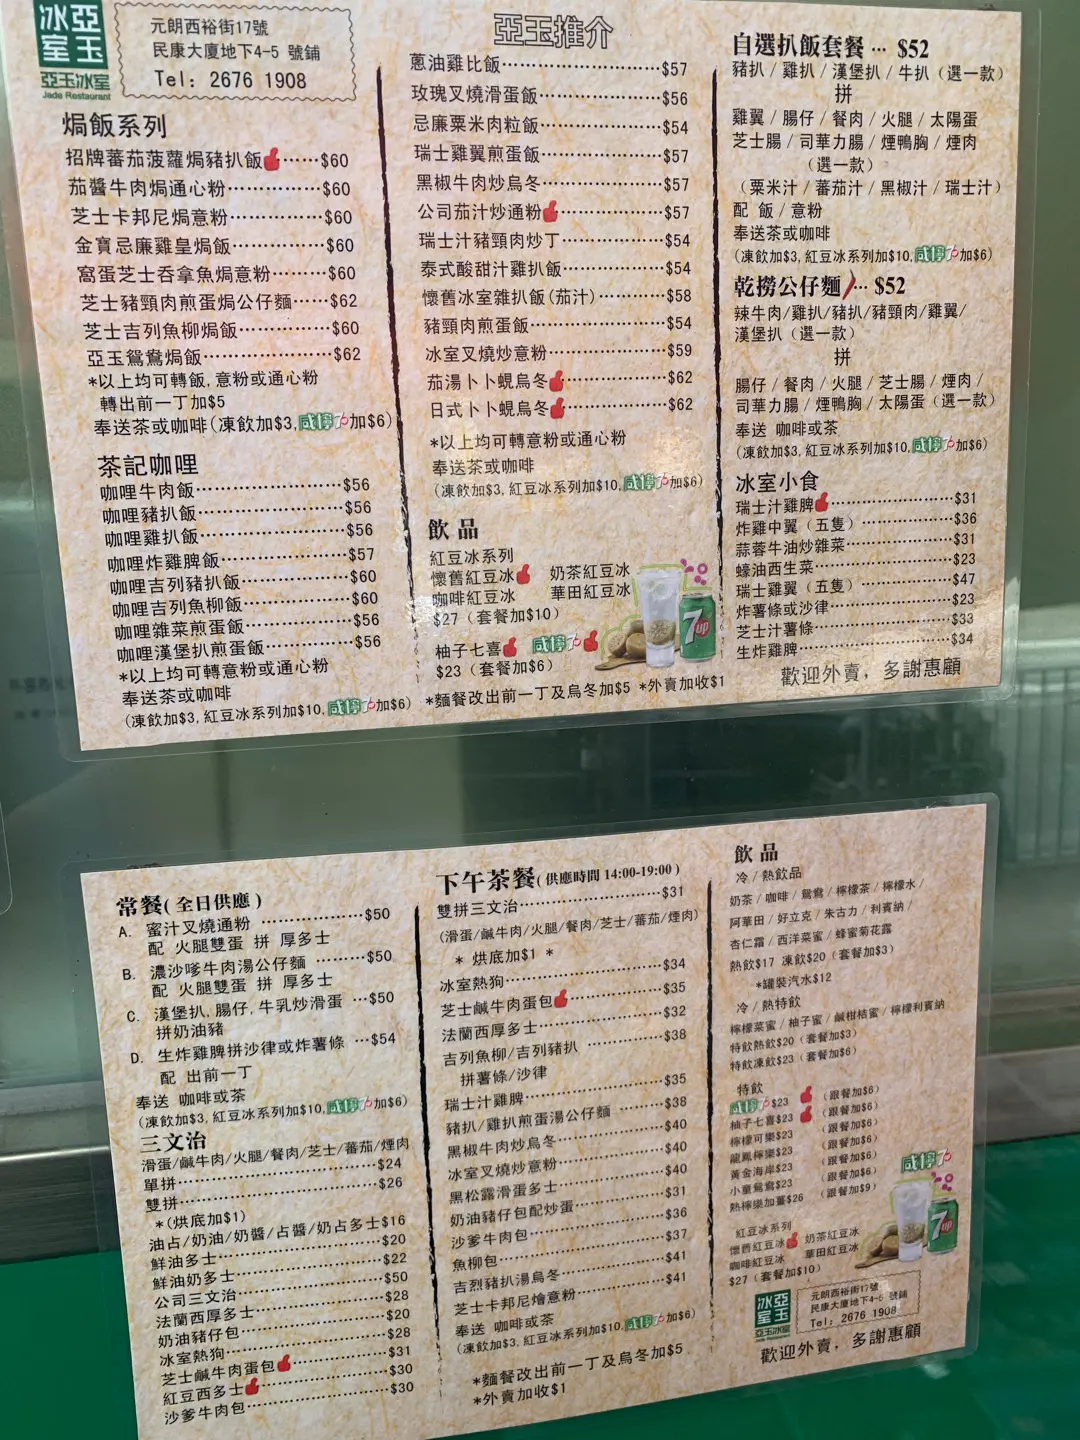 冰室
亞玉
亞玉冰室
Jade Restaurant
元朗西裕街17號
民康大廈地下4-5 號鋪
Tel: 2676 1908
焗飯系列
招牌蕃茄菠蘿焗豬扒飯······$60
茄醬牛肉焗通心粉··············$60
芝士卡邦尼焗意粉··············$60
金寶忌廉雞皇焗飯··············$60
窩蛋芝士吞拿魚焗意粉·········$60
芝士豬頸肉煎蛋焗公仔麵······$62
芝士吉列魚柳焗飯··············$60
亞玉鴛鴦焗飯···················$62
*以上均可轉飯, 意粉或通心粉
轉出前一丁加$5
奉送茶或咖啡(凍飲加$3, 咸檸7加$6)
茶記咖哩
咖哩牛肉飯······················$56
咖哩豬扒飯······················$56
咖哩雞扒飯······················$56
咖哩炸雞脾飯···················$57
咖哩吉列豬扒飯················$60
咖哩吉列魚柳飯················$60
咖哩雜菜煎蛋飯················$56
咖哩漢堡扒煎蛋飯·············$56
*以上均可轉意粉或通心粉
奉送茶或咖啡
(凍飲加$3, 紅豆冰系列加$10, 咸檸7加$6)
亞玉推介
蔥油雞比飯······················$57
玫瑰叉燒滑蛋飯················$56
忌廉粟米肉粒飯················$54
瑞士雞翼煎蛋飯················$57
黑椒牛肉炒烏冬················$57
公司茄汁炒通粉················$57
瑞士汁豬頸肉炒丁·············$54
泰式酸甜汁雞扒飯·············$54
懷舊冰室雜扒飯(茄汁)·········$58
豬頸肉煎蛋飯···················$54
冰室叉燒炒意粉················$59
茄湯卜卜蜆烏冬················$62
日式卜卜蜆烏冬················$62
*以上均可轉意粉或通心粉
奉送茶或咖啡
(凍飲加$3, 紅豆冰系列加$10, 咸檸7加$6)
飲品
紅豆冰系列
懷舊紅豆冰 奶茶紅豆冰
咖啡紅豆冰 華田紅豆冰
$27 (套餐加$10)
柚子七喜 咸檸7
$23 (套餐加$6)
7up
*麵餐改出前一丁及烏冬加$5 *外賣加收$1
自選扒飯套餐 ··· $52
豬扒 / 雞扒 / 漢堡扒 / 牛扒 (選一款)
拼
雞翼 / 腸仔 / 餐肉 / 火腿 / 太陽蛋
芝士腸 / 司華力腸 / 煙鴨胸 / 煙肉
(選一款)
(粟米汁 / 蕃茄汁 / 黑椒汁 / 瑞士汁)
配 飯 / 意粉
奉送茶或咖啡
(凍飲加$3, 紅豆冰系列加$10, 咸檸7加$6)
乾撈公仔麵··· $52
辣牛肉/雞扒/豬扒/豬頸肉/雞翼/
漢堡扒 (選一款)
拼
腸仔 / 餐肉 / 火腿 / 芝士腸 / 煙肉 /
司華力腸 / 煙鴨胸 / 太陽蛋 (選一款)
奉送 咖啡或茶
(凍飲加$3, 紅豆冰系列加$10, 咸檸7加$6)
冰室小食
瑞士汁雞脾······················$31
炸雞中翼 (五隻) ················$36
蒜蓉牛油炒雜菜················$31
蠔油西生菜······················$23
瑞士雞翼 (五隻) ················$47
炸薯條或沙律···················$23
芝士汁薯條······················$33
生炸雞脾·························$34
歡迎外賣, 多謝惠顧
常餐( 全日供應 )
A. 蜜汁叉燒通粉 ···············$50
配 火腿雙蛋 拼 厚多士
B. 濃沙嗲牛肉湯公仔麵 ·········$50
配 火腿雙蛋 拼 厚多士
C. 漢堡扒, 腸仔, 牛乳炒滑蛋 ···$50
拼奶油豬
D. 生炸雞脾拼沙律或炸薯條 ···$54
配 出前一丁
奉送 咖啡或茶
(凍飲加$3, 紅豆冰系列加$10, 咸檸7加$6)
三文治
滑蛋/鹹牛肉/火腿/餐肉/芝士/蕃茄/煙肉
單拼·························$24
雙拼·························$26
*(烘底加$1)
油占/奶油/奶醬/占醬/奶占多士$16
鮮油多士······················$20
鮮油奶多士···················$22
公司三文治···················$50
法蘭西厚多士················$28
奶油豬仔包···················$20
冰室熱狗······················$28
芝士鹹牛肉蛋包·············$31
紅豆西多士···················$30
沙爹牛肉包···················$30
下午茶餐( 供應時間 14:00-19:00 )
雙拼三文治···················$31
(滑蛋/鹹牛肉/火腿/餐肉/芝士/蕃茄/煙肉)
* 烘底加$1 *
冰室熱狗······················$34
芝士鹹牛肉蛋包·············$35
法蘭西厚多士················$32
吉列魚柳/吉列豬扒 ··········$38
拼薯條/沙律
瑞士汁雞脾···················$35
豬扒/雞扒煎蛋湯公仔麵 ······$38
黑椒牛肉炒烏冬·············$40
冰室叉燒炒意粉·············$40
黑松露滑蛋多士·············$40
奶油豬仔包配炒蛋··········$31
沙爹牛肉包···················$36
魚柳包·························$37
吉烈豬扒湯烏冬·············$41
芝士卡邦尼燴意粉··········$41
奉送 咖啡或茶
(凍飲加$3, 紅豆冰系列加$10, 咸檸7加$6)
*麵餐改出前一丁及烏冬加$5
*外賣加收$1
飲品
冷 / 熱飲品
奶茶 / 咖啡 / 鴛鴦 / 檸檬茶 / 檸檬水 /
阿華田 / 好立克 / 朱古力 / 利賓納 /
杏仁霜 / 西洋菜蜜 / 蜂蜜菊花露
熱飲$17 凍飲$20 (套餐加$3)
*罐裝汽水$12
冷 / 熱特飲
檸檬菜蜜 / 柚子蜜 / 鹹柑桔蜜 / 檸檬利賓納
特飲熱飲$20 (套餐加$3)
特飲凍飲$23 (套餐加$6)
特飲
咸檸7 $23 (跟餐加$6)
柚子七喜$23 (跟餐加$6)
檸檬可樂$23 (跟餐加$6)
龍鳳檸樂$23 (跟餐加$6)
黃金海岸$23 (跟餐加$6)
小童鴛鴦$23 (跟餐加$6)
熱檸樂加薑$26 (跟餐加$9)
咸檸7
7up
紅豆冰系列
懷舊紅豆冰 奶茶紅豆冰
咖啡紅豆冰 華田紅豆冰
$27 (套餐加$10)
冰室
亞玉
亞玉冰室
元朗西裕街17號
民康大廈地下4-5 號鋪
Tel: 2676 1908
歡迎外賣, 多謝惠顧